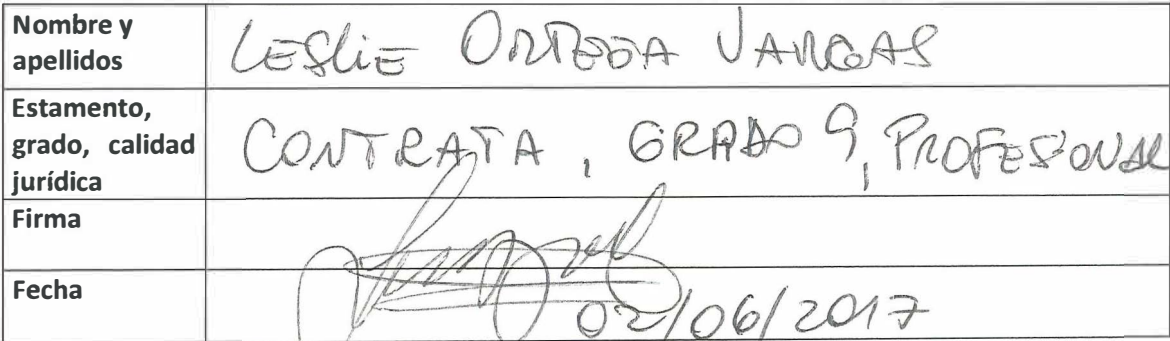 Nombre y
apellidos
LESLIE ORTEGA VARGAS
Estamento,
grado, calidad
jurídica
CONTRATA, GRADO 9, PROFESIONAL
Firma
Fecha
02/06/2017